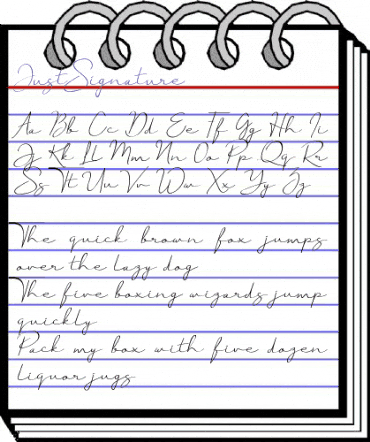 JustSignature
Aa Bb Cc Dd Ee Ff Gg Hh Ii
Jj Kk Ll Mm Nn Oo Pp Qq Rr
Ss Tt Uu Vv Ww Xx Yy Zz
The quick brown fox jumps
over the lazy dog
The five boxing wizards jump
quickly
Pack my box with five dozen
liquor jugs